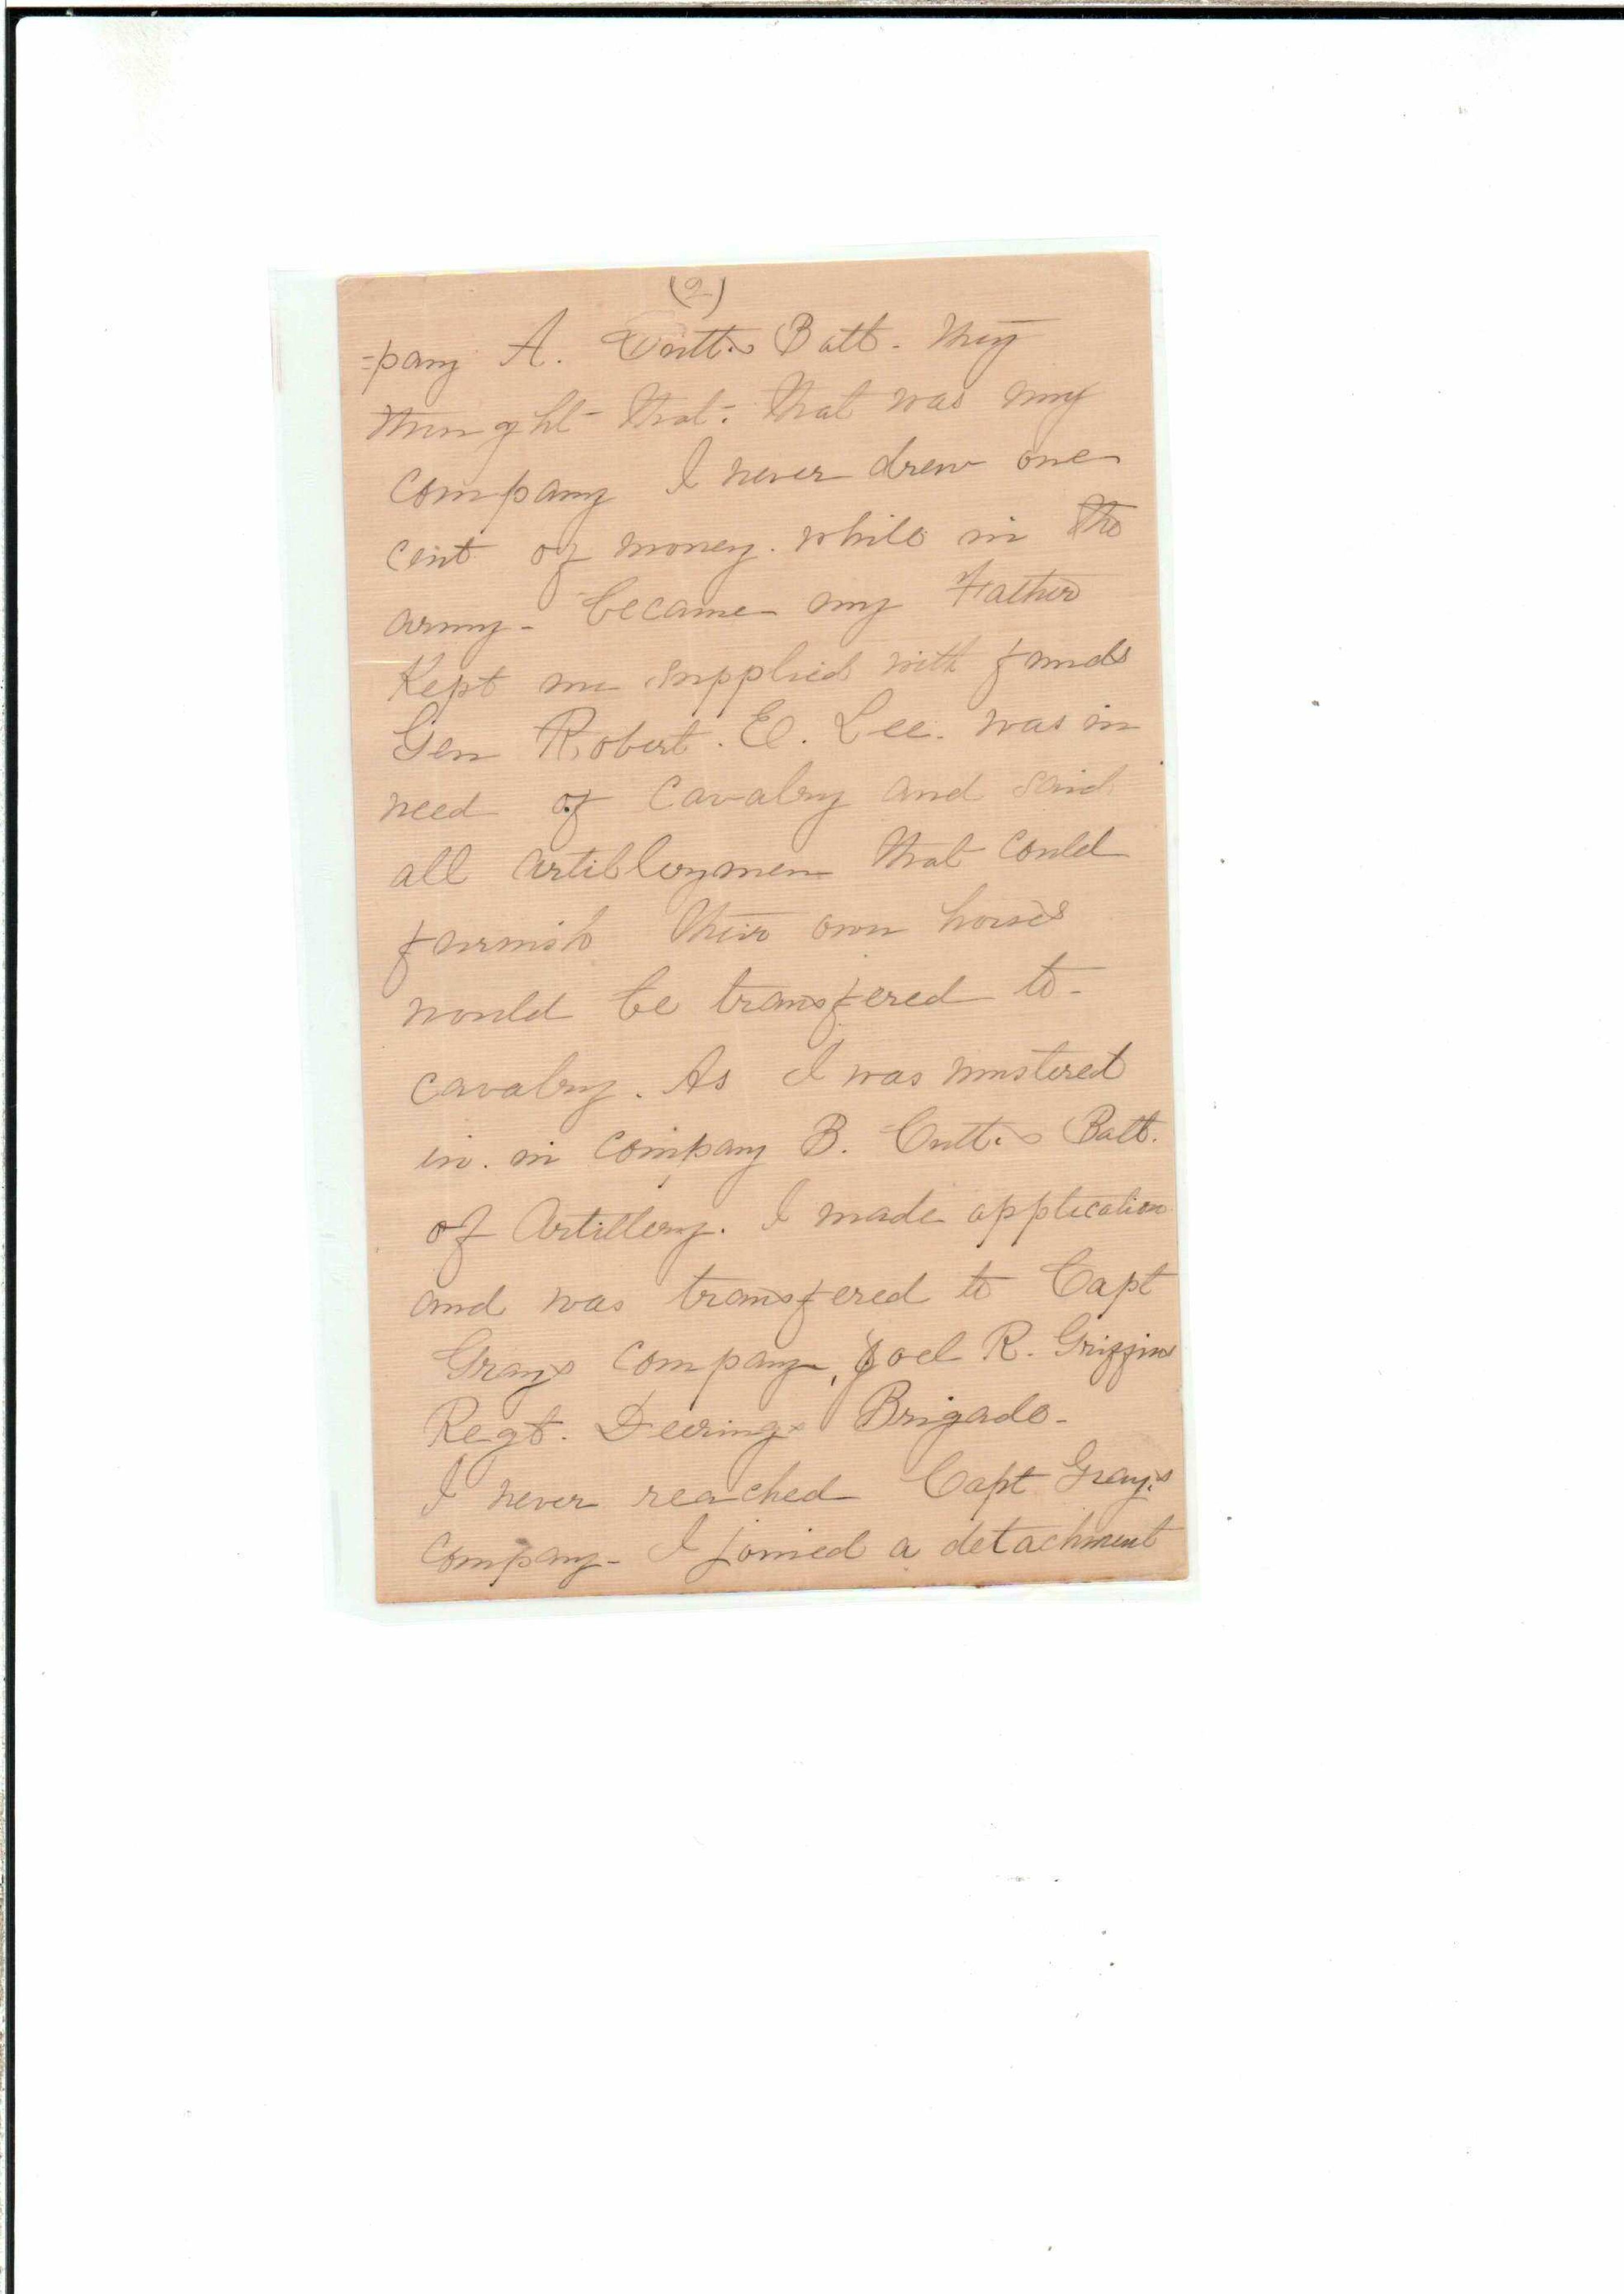 (2)
-pany A. Cutts Batt. They
thought that. that was my
company I never drew one
cent of money. while in the
army - became my Father
Kept me supplied with funds
Gen Robert. E. Lee. was in
need of Cavalry and said
all artillerymen that could
furnish their own horses
would be transfered to -
cavalry. As I was mustered
in. in Company B. Cutts Batt.
of Artillery. I made application
and was transfered to Capt
Grays company, Joel R. Griffin
Regt. Deerings Brigade -
I never reached Capt Gray's
company - I joined a detachment